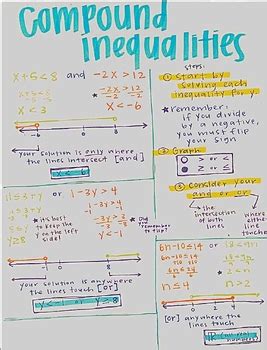 Compound
inequalities
x+5<8 and -2x>12
x<3
x<-6
-6 0 3
your solution is only where
the lines intersect [and]
x<-6
steps:
① Start by
solving each
inequality for y.
* remember:
if you divide
by a negative,
you must flip
your sign
② Graph
> or <
≥ or ≤
③ Consider your
and or or
the
intersection of
both lines
where
either line
touches
11≤3+y or 1-3y>4
-3 -3
-1 -1
-3y>3
y≥8
y<-1
* it's best
to keep the
y on the left
side!
* Did
you
remember
to flip?
-1 0 8
your solution is anywhere
the lines touch [or]
y<-1 or y≥8
6n-10≤14 or 18<9n
+10 +10
6n≤24
n≤4
n>2
[or] anywhere the
lines touch